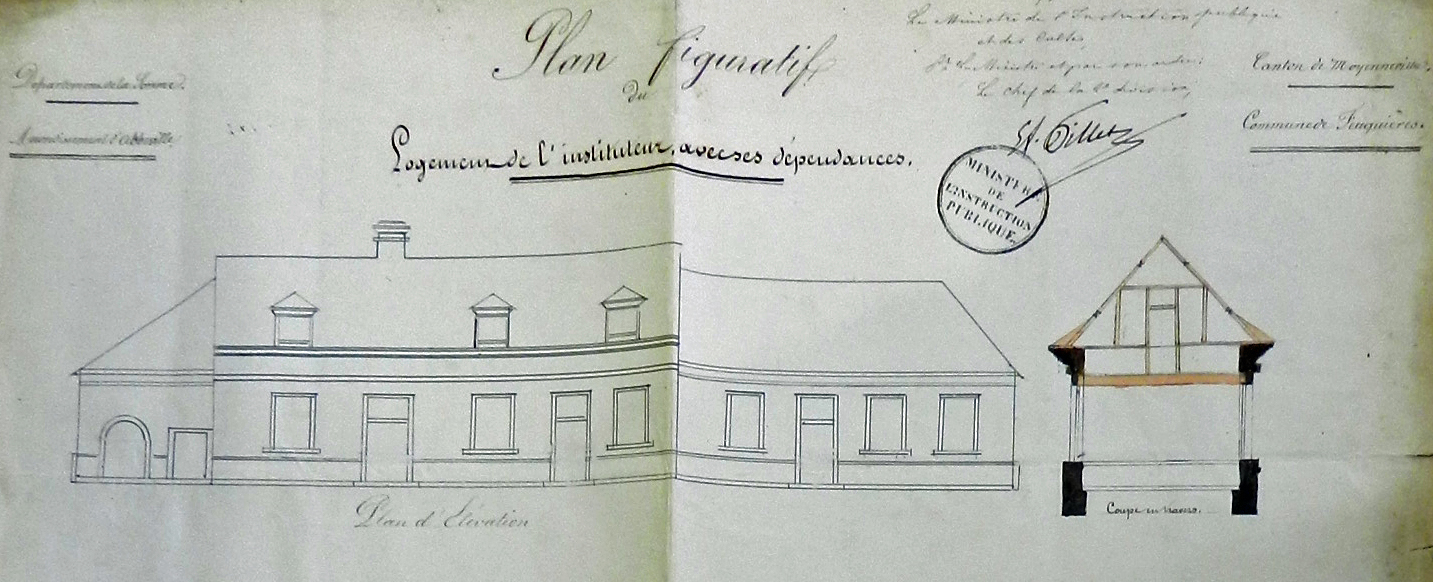 Département de la Somme.
Arrondissement d'Abbeville
Plan figuratif
du
Logement de l'instituteur, avec ses dépendances.
Le Ministre de l'Instruction publique
et des Cultes,
Le Ministre et par son ordre:
Le Chef de la 2e division,
MINISTERE
DE
L'INSTRUCTION
PUBLIQUE.
Canton de Moyenneville,
Commune de Feuquières.
Plan d'Élévation
Coupe en travers.